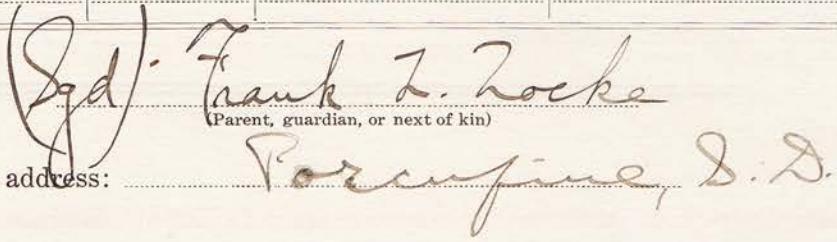 (Sgd) Frank L. Locke
(Parent, guardian, or next of kin)
address: Porcupine, S. D.